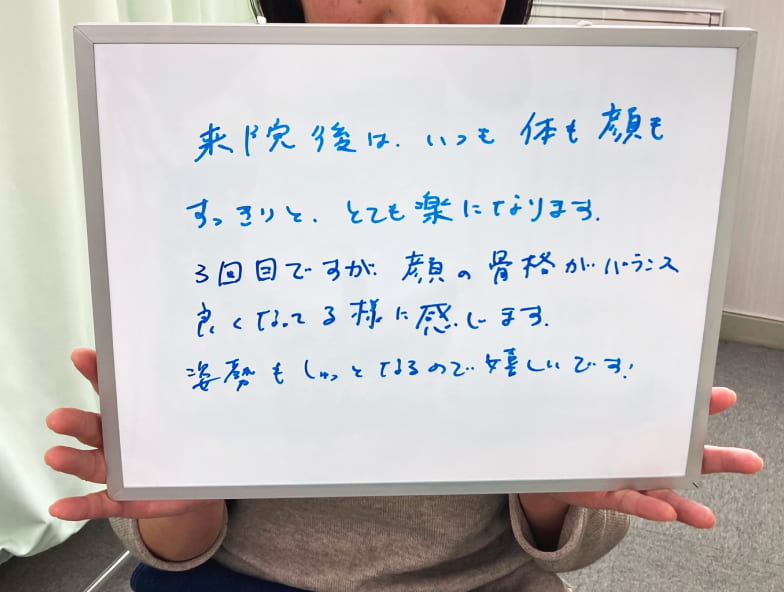 来院後は、いつも 体も 顔も
すっきりと、とても楽になります。
3回目ですが、顔の骨格がバランス
良くなってる様に感じます。
姿勢もしゅっとなるので嬉しいです!